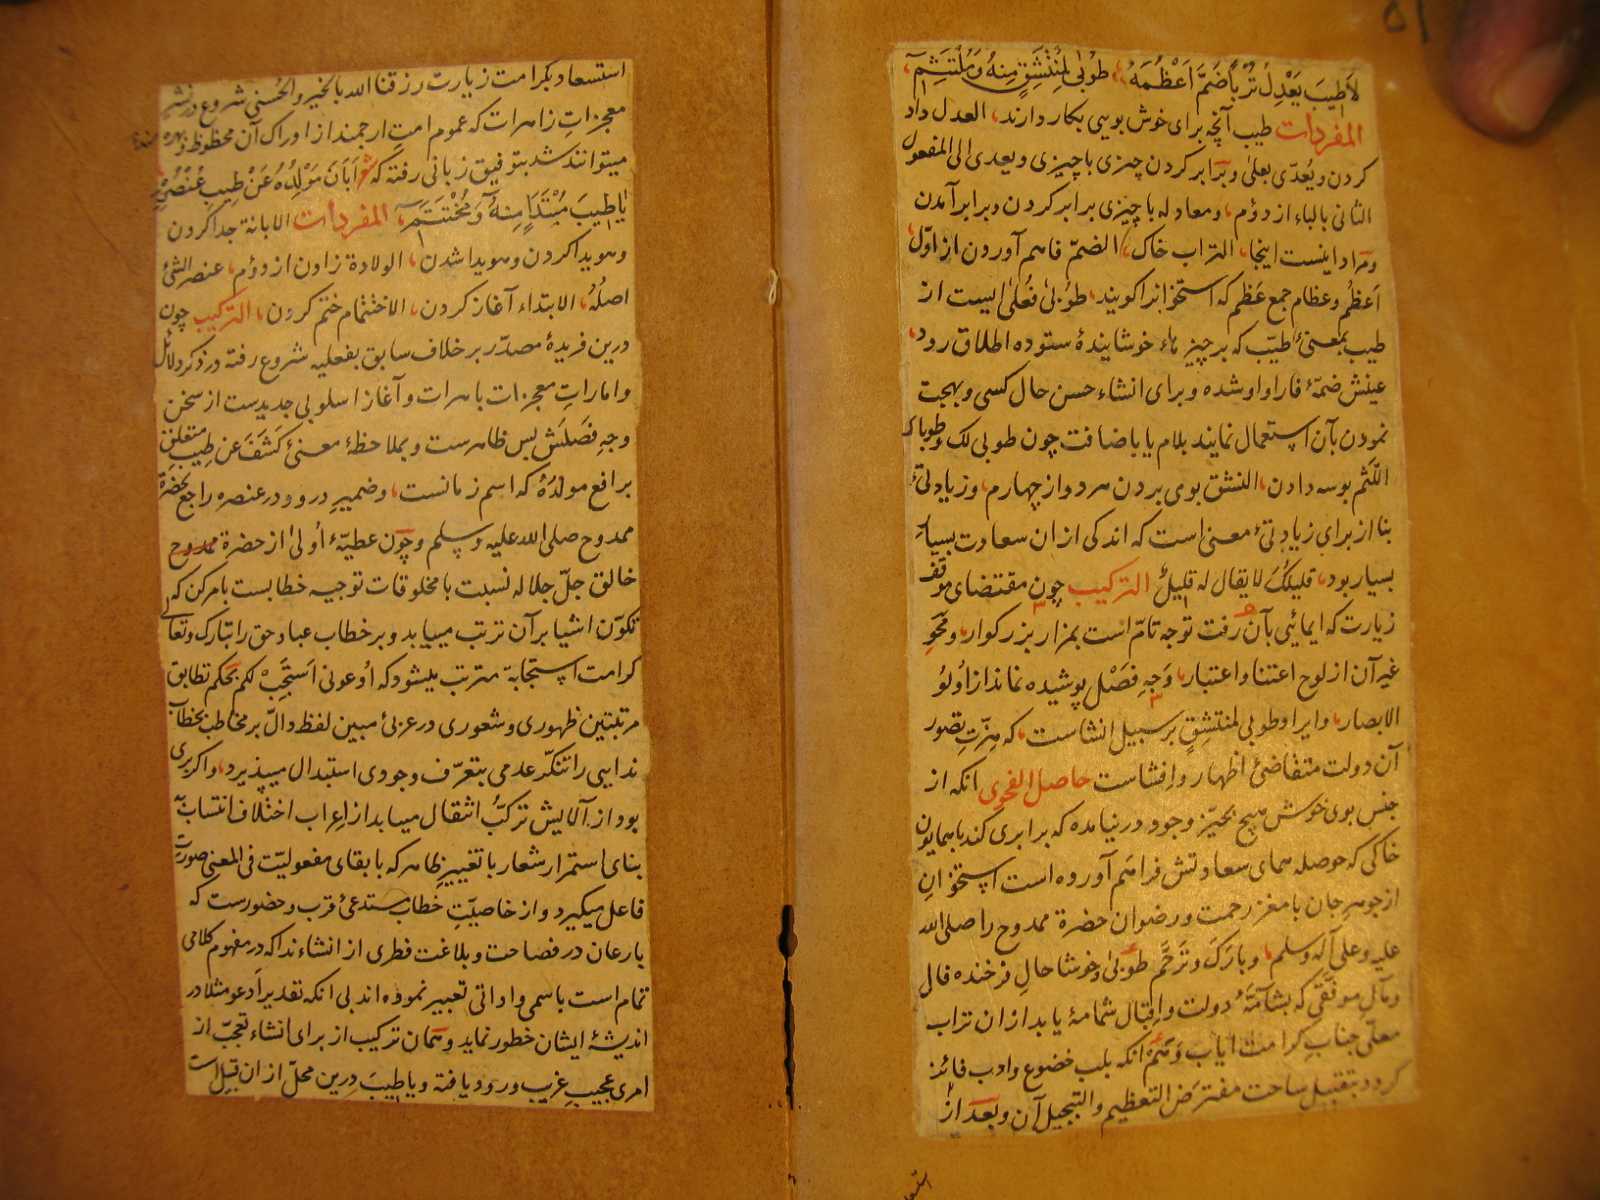 ۵۱
لاطِیبَ یَعْدِلُ تُرْبًا ضَمَّ اَعْظُمَهُ، طُوْبٰی لِمُنْتَشِقٍ مِنْهُ وَمُلْتَثِمٖ
المفردات طیب آنچه برای خوش بویی بکار دارند، العدل داد
کردن و یُعدّی بعلی و برابر کردن چیزی با چیزی و یعدی الی المفعول
الثانی بالباء از دوُم، و معادله با چیزی برابر کردن و برابر آمدن
و مراد اینست اینجا، التراب خاک، الضمّ فاهم آوردن از اوّل
اَعظُم و عظام جمع عَظم که استخوانرا گویند، طُوبٰی فُعلٰی ایست از
طیب بمعنیٔ اطیَب که بر چیزهاء خوشایندهٔ ستوده اطلاق رود،
عینش ضمّهٔ فا را واو شده و برای انشاء حسن حال کسی و بهجت
نمودن بآن استعمال نمایند بلام یا باضافت چون طوبی لک و طوباک
اللّثم بوسه دادن، النشق بوی بردن هر دو از چهارم، و زیادتیٔ
بنا از برای زیادتیٔ معنی است که اندکی از ان سعادت بسیارِ
بسیار بود، قلیلکُ لا یقال له قلیلٌ الترکیب چون مقتضای موقف
زیارت که ایمائی بآن رفت توجه تامّ است بمزار بزرگوار، و مَحْوِ
غیر آن از لوح اعتنا و اعتبار، وَجهِ فَصْل پوشیده نماند از اُولُو
الابصار، و ایراد طوبی لمنتشِقٍ بر سبیل انشاست، که هزّتِ تصور
آن دولت متقاضیٔ اظهار و اِفشاست حاصل الفحوی انکه از
جنس بوی خوش هیچ بحیّز وجود در نیامده که برابری کند با همایون
خاکی که حوصله همای سعادتش فراهم آورده است استخوانِ
از جوهرِ جان با مغز رحمت و رضوان حضرة ممدوح را صلی الله
علیه و علی آله و سلم، و بارَکَ و تَرحَّم طوبٰی و خوشا حالِ فرخنده فال
و مآل موفّقی که بشامّهٔ دولت و اِقبال شمامهٔ یابد از ان تراب
معلّی جنابِ کرامت ایاب و هم انکه بلب خضوع و ادب فائز
گردد بتقبیل ساحت مفترض التعظیم و التبجیل آن و بعد از
استسعاد بکرامت زیارت رزقنا الله بالخیر و الحُسنی شروع در نشر
معجزاتِ زاهرات که عموم امت ارجمند از اوراک آن محظوظ و بهره مند
میتوانند شد بتوفیق زبانی رفته که اَبَانَ مَوْلِدُهُ عَنْ طِیبِ عُنْصُرِهٖ
یَا طِیبَ مُبْتَدَاٍ مِنهُ وَمُخْتَتَمٖ، المفردات الابانة جدا کردن
و هویدا کردن و هویدا شدن، الولادة زادن از دوُم، عنصر الشئ
اصلُهُ، الابتداء آغاز کردن، الاختتام ختم کردن، الترکیب چون
درین فریدهٔ مصدّر بر خلاف سابق بفعلیه شروع رفته در ذکر دلائل
و اماراتِ معجزات باهرات و آغاز اسلوبی جدیدست از سخن
وجهِ فَصلَش بس ظاهرست و بملاحظهٔ معنیٔ کَشَفَ عَن طیب متعلق
برافع مولدُهُ که اسم زمانست، و ضمیر در و و در عنصره راجع بحضرة
ممدوح صلی الله علیه و سلم و چون عطیّهٔ اُولیٰ از حضرة ممدوح
خالق جلّ جلاله نسبت با مخلوقات توجیه خطابست بامر کن که
تکوّن اشیا بر آن ترتب مییابد و بر خطاب عباد حق را تبارک و تعالی
کرامت استجابة مترتب میشود که اُدعونی اَستَجِبْ لکم بحکم تطابق
مرتبتین ظهوری و شعوری در عربیٔ مبین لفظ دالّ بر مخاطب بخطاب
ندایی را تنکّر عدمی بتعرّف وجودی استبدال میپذیرد، و اگر بری
بود از آلایش ترکّب انتقال مییابد از اِعراب اختلاف انتساب
بنای استمرار شعار با تغییرِ ظاهر که با بقای مفعولیّت فی المعنی صورت
فاعل میگیرد و از خاصیّتِ خطاب مستدعیٔ قرب و حضورست که
بارعان در فصاحت و بلاغت فطری از انشاء ندا که در مفهوم کلامی
تمام است باسمی و اداتی تعبیر نموده اند بی انکه تقدیر اَدعو مثلا در
اندیشهٔ ایشان خطور نماید و همان ترکیب از برای انشاء تعجّب از
امری عجیبِ غریب ورود یافته و یا طِیبَ درین محلّ از ان قبیل است